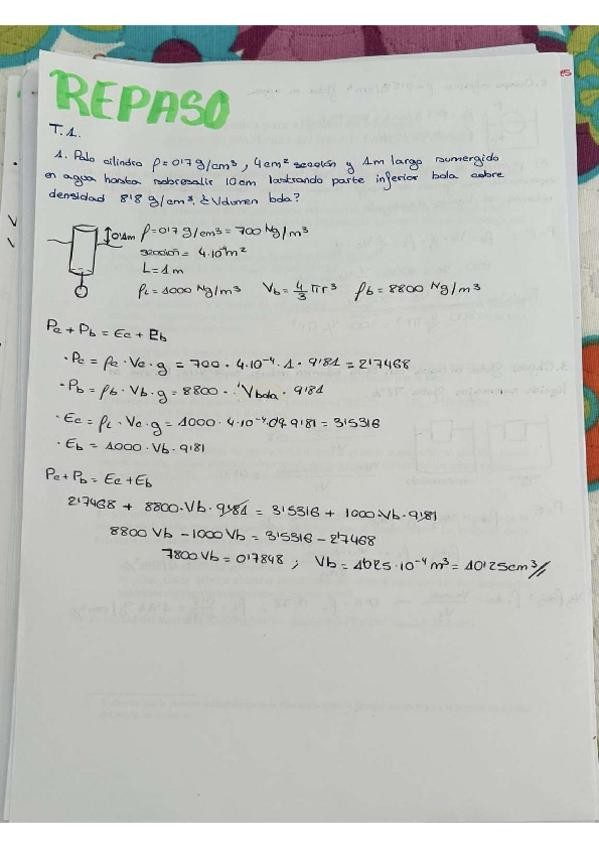 REPASO
T.1.
1. Palo cilindro ρ=0'7 g/cm³, 4cm² sección y 1m largo sumergido
en agua hasta sobresalir 10cm lastrando parte inferior bola cobre
densidad 8'8 g/cm³. ¿Volumen bola?
0'1m ρ=0'7 g/cm³ = 700 Kg/m³
sección = 4·10⁻⁴m²
L=1m
ρL=1000 Kg/m³ Vb=4/3 πr³ ρb=8800 Kg/m³
Pc + Pb = Ec + Eb
·Pc = ρc·Vc·g = 700·4·10⁻⁴·1·9'81 = 2'7468
·Pb = ρb·Vb·g = 8800·Vbola·9'81
·Ec = ρL·Vc·g = 1000·4·10⁻⁴·0'9·9'81 = 3'5316
·Eb = 1000·Vb·9'81
Pc+Pb = Ec+Eb
2'7468 + 8800·Vb·9'81 = 3'5316 + 1000·Vb·9'81
8800 Vb - 1000 Vb = 3'5316 - 2'7468
7800 Vb = 0'7848 ; Vb = 1'025·10⁻⁴m³ = 10'25cm³//